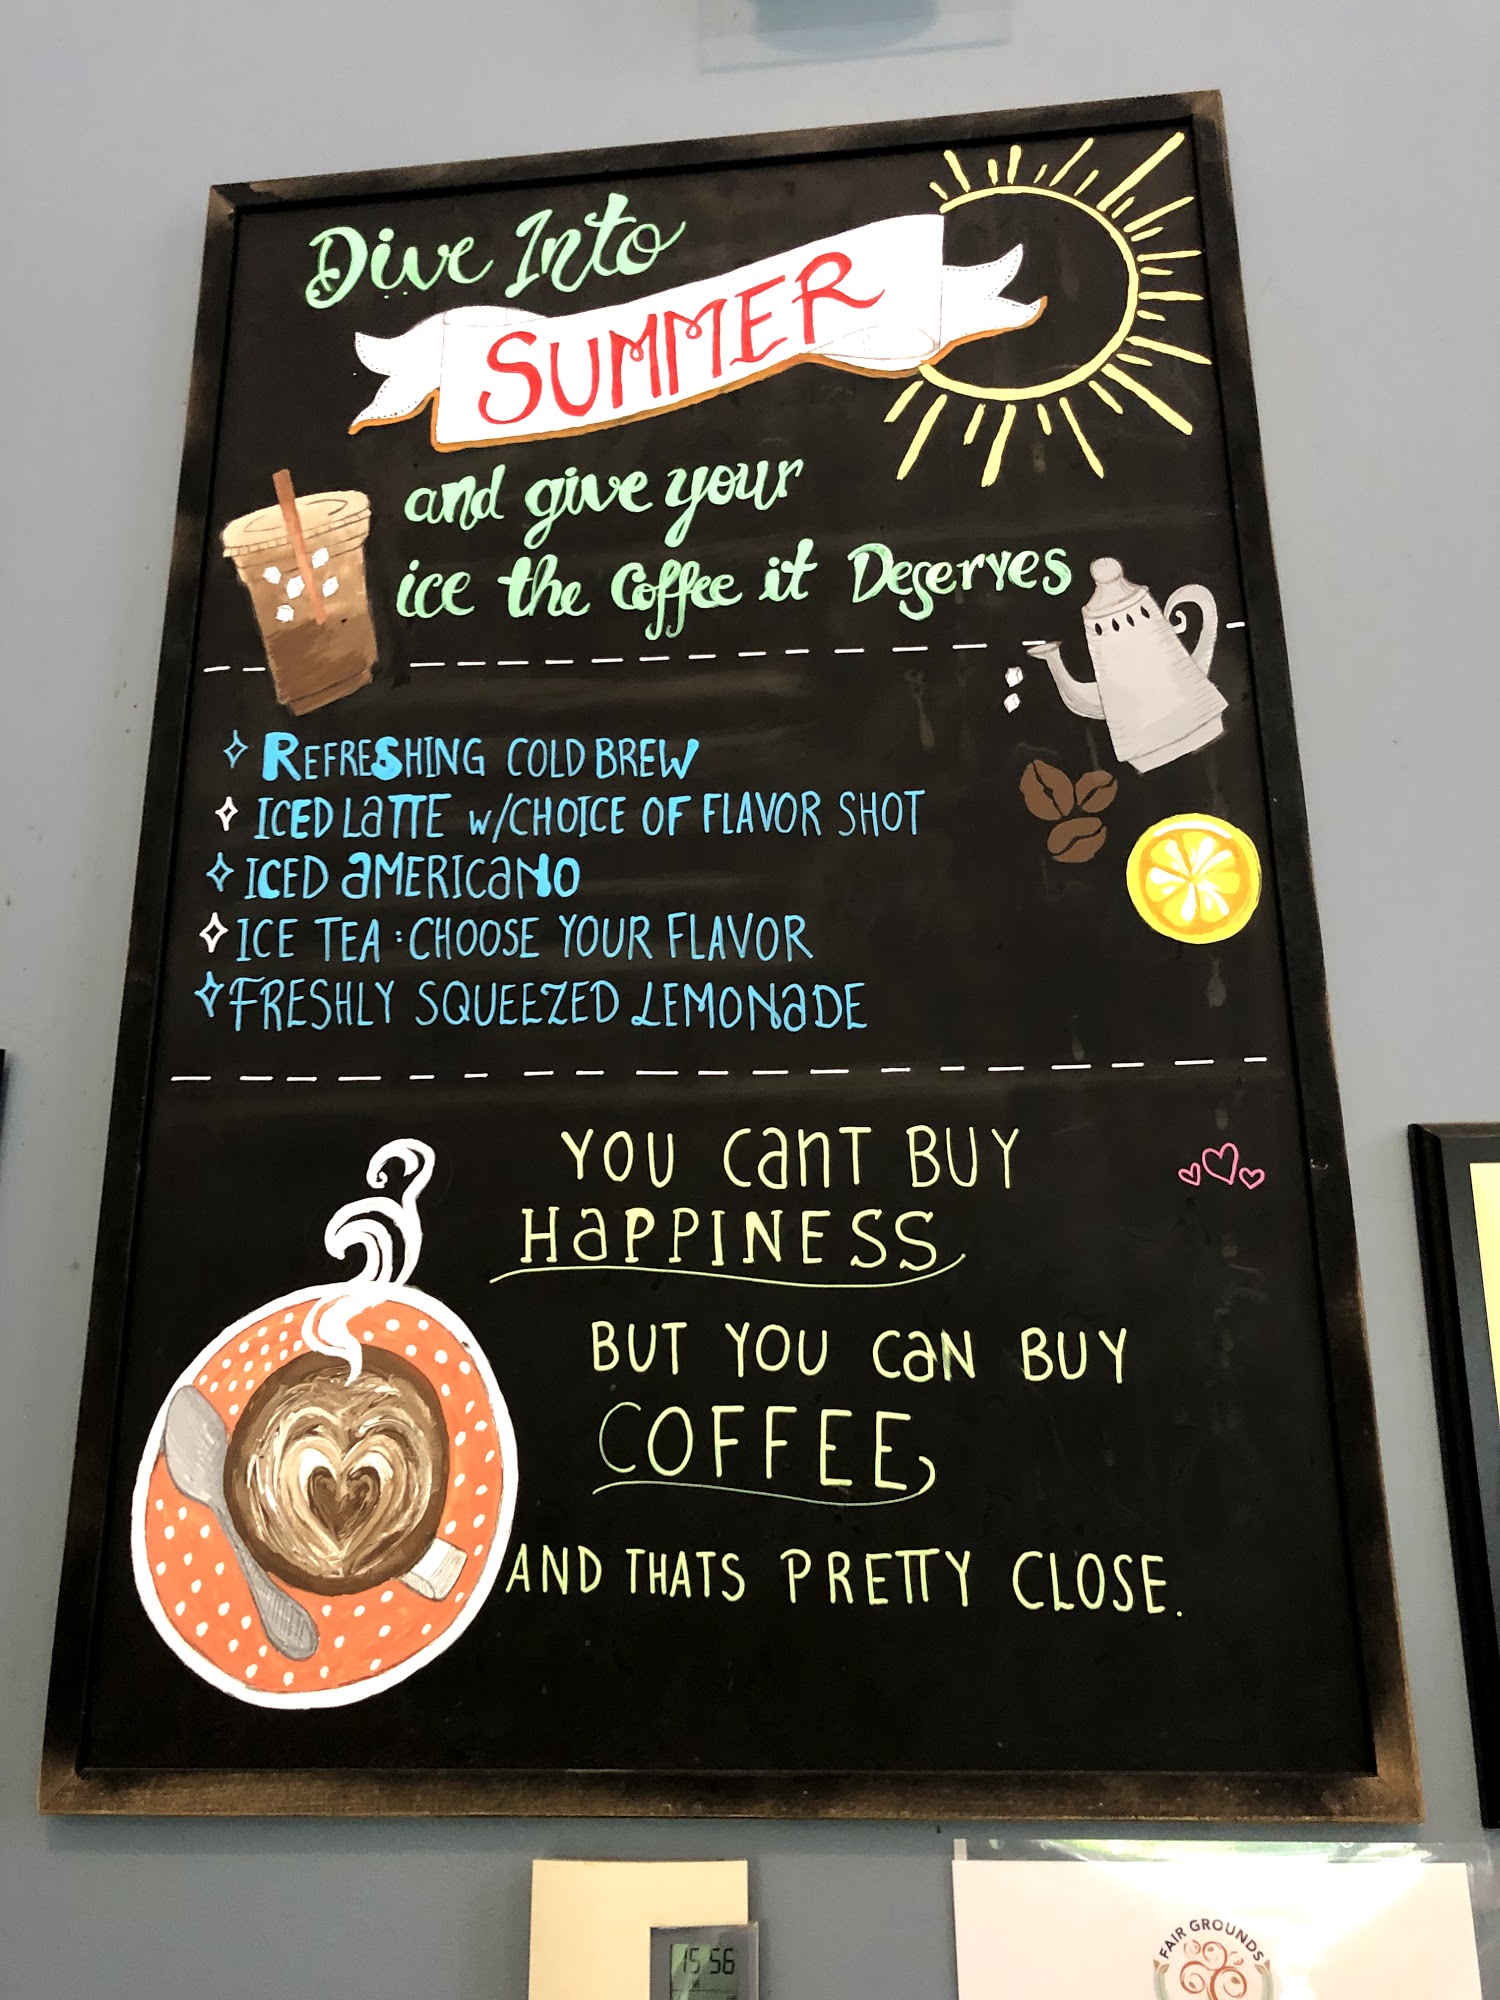 Dive Into
SUMMER
and give your
ice the Coffee it Deserves
REFRESHING COLD BREW
ICED LaTTE w/CHOICE OF FLAVOR SHOT
ICED aMERICaNO
ICE TEA : CHOOSE YOUR FLAVOR
FRESHLY SQUEEZED LEMONaDE
YOU CanT BUY
HaPPINESS
BUT YOU CaN BUY
COFFEE
AND THATS PRETTY CLOSE.
15 56
FAIR GROUNDS